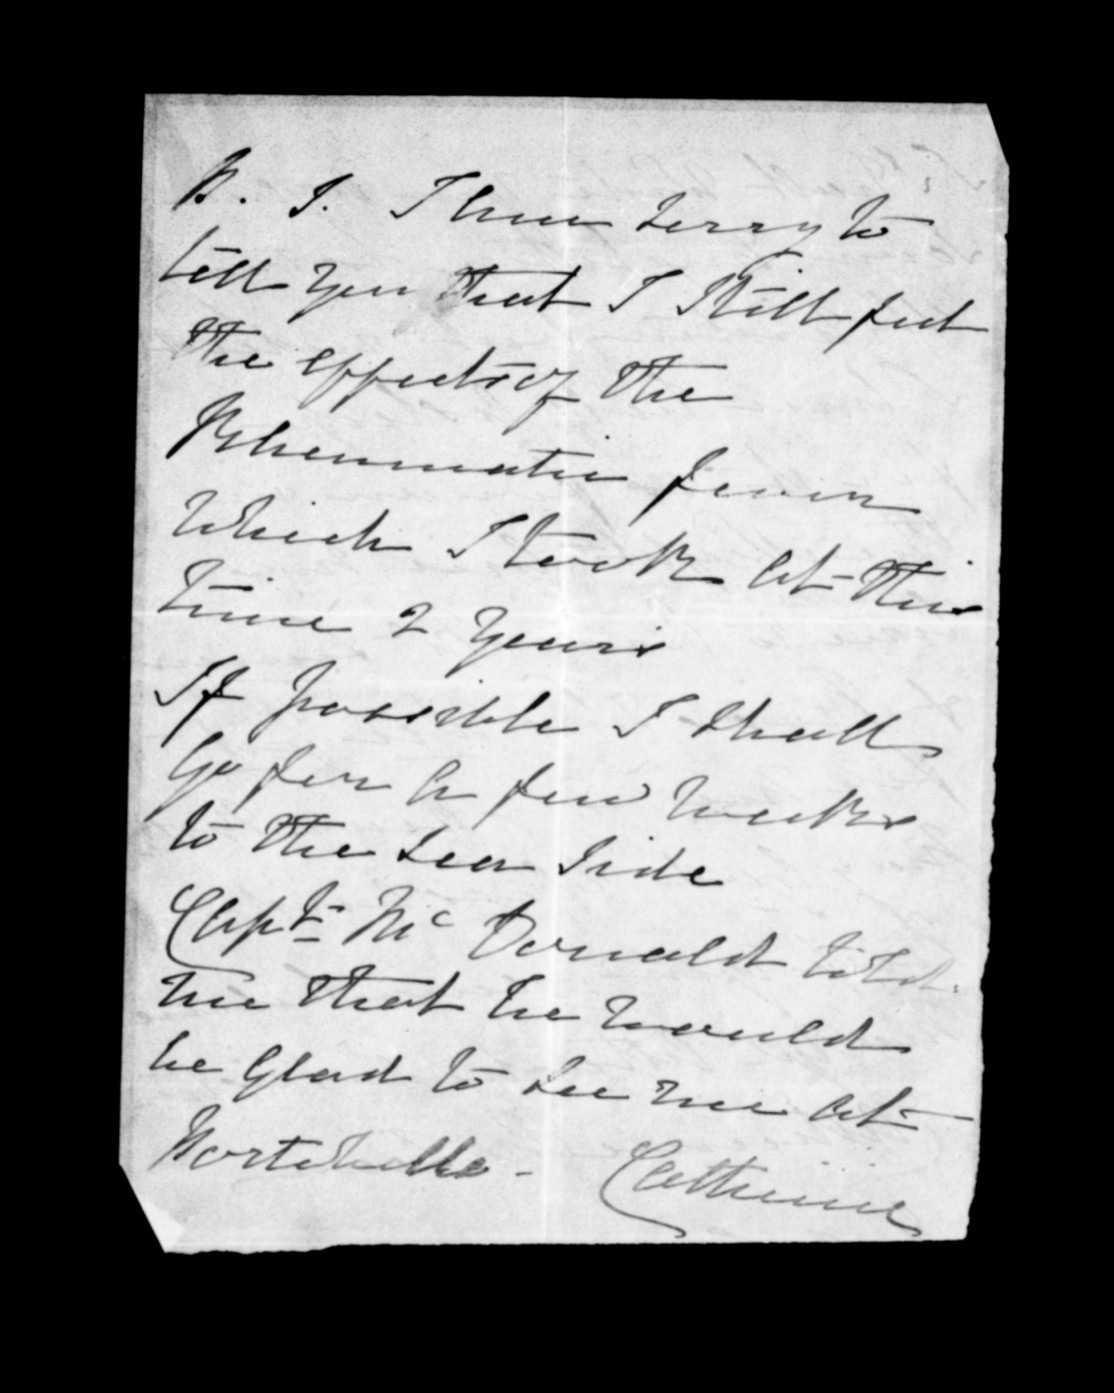 P. S. I have sorry to
tell you that I still feel
the effects of the
Rheumatic fever
which I took at this
time 2 years
If possible I shall
Go for a few weeks
to the sea side
Capt. Mc Donald told
me that he would
be glad to see me at
Portobello - Catherine